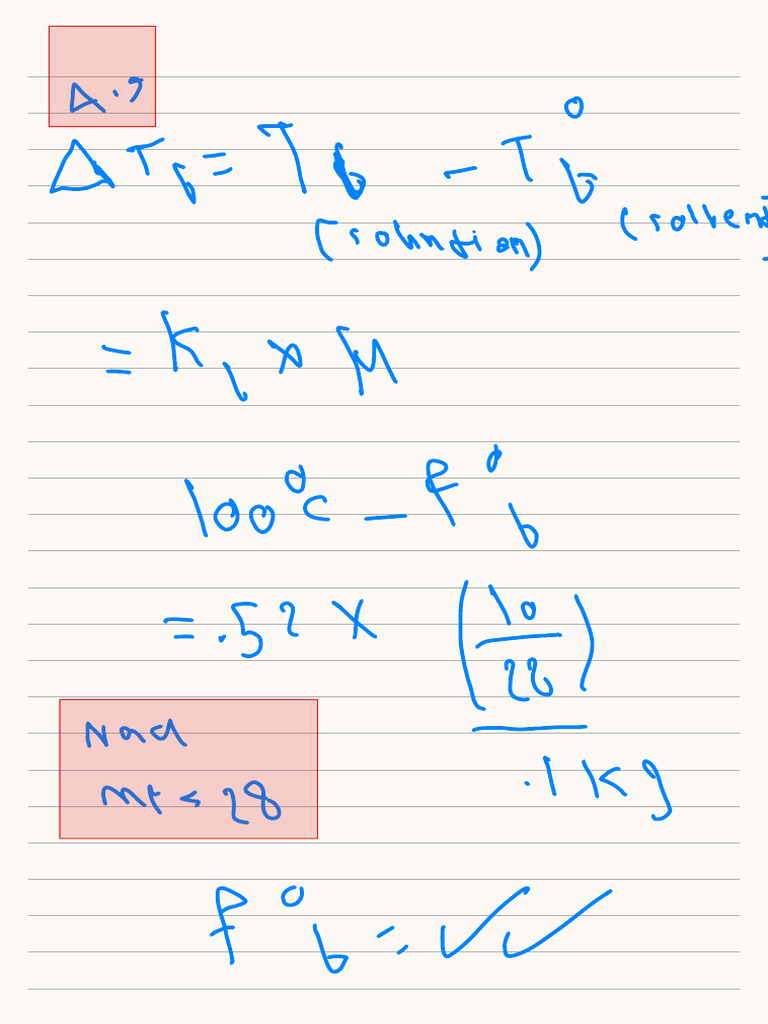 Δ T b = T b - T b °
(solution) (solvent
= K b × M
100°C - P ° b
= .52 × (10/28)
.1 kg
Nacl
mt < 28
P ° b = ✓✓